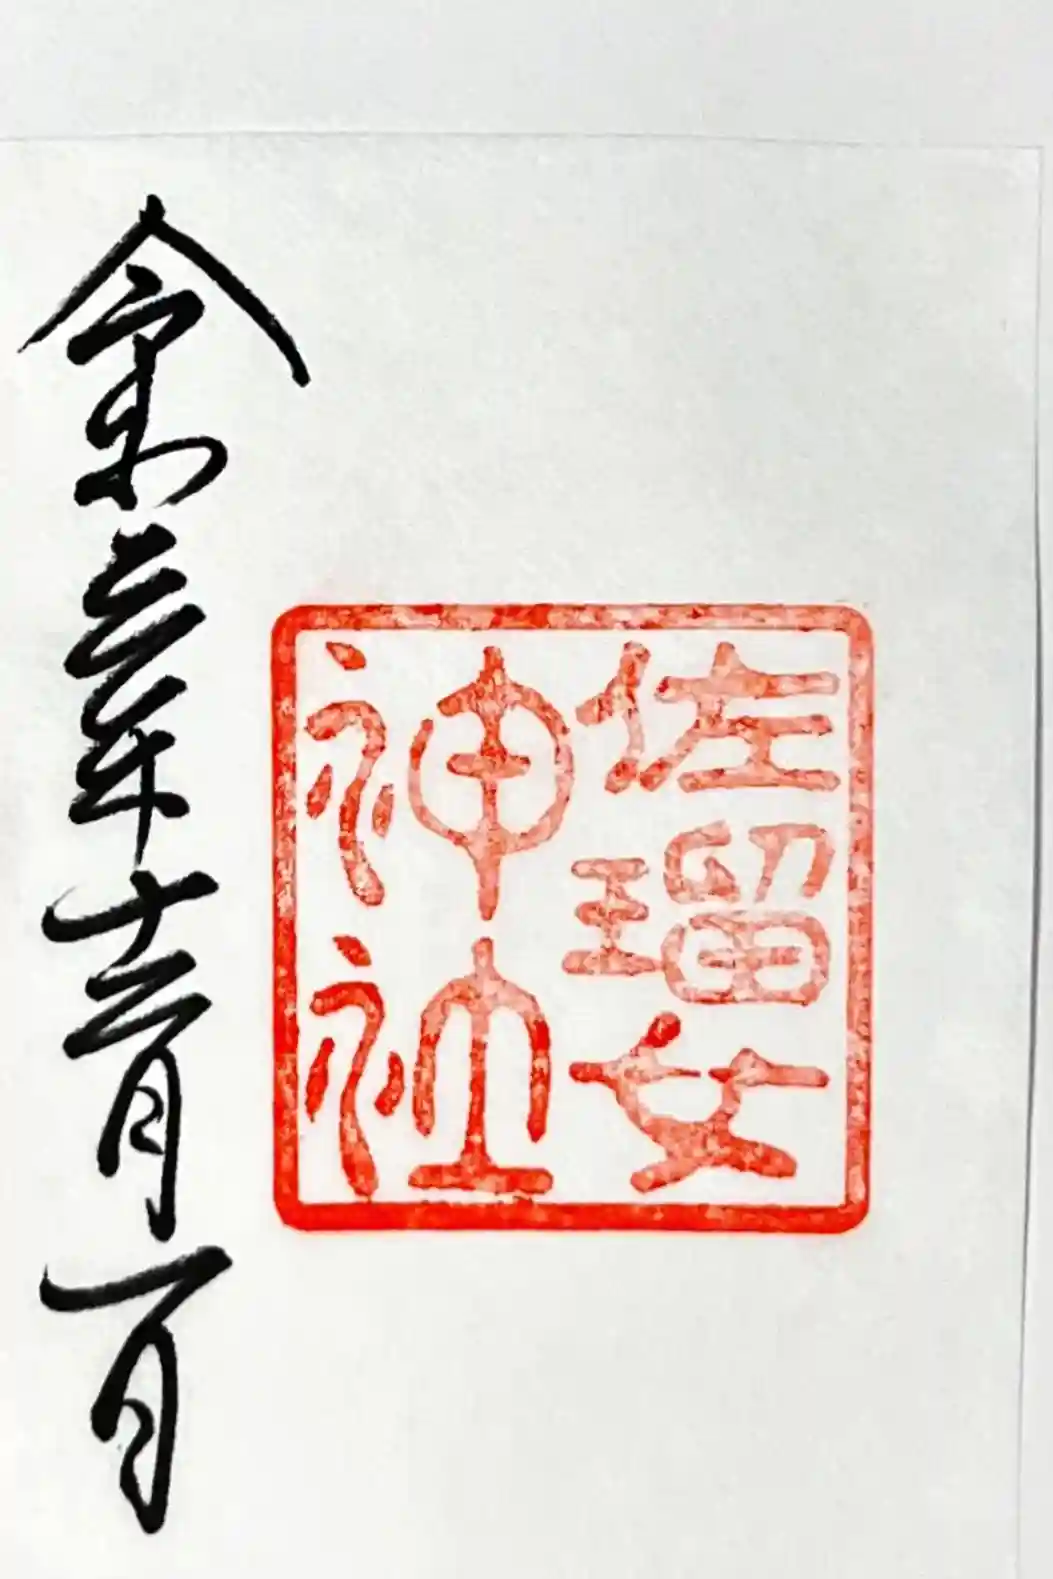 佐瑠女
神社
令和三年十二月一日